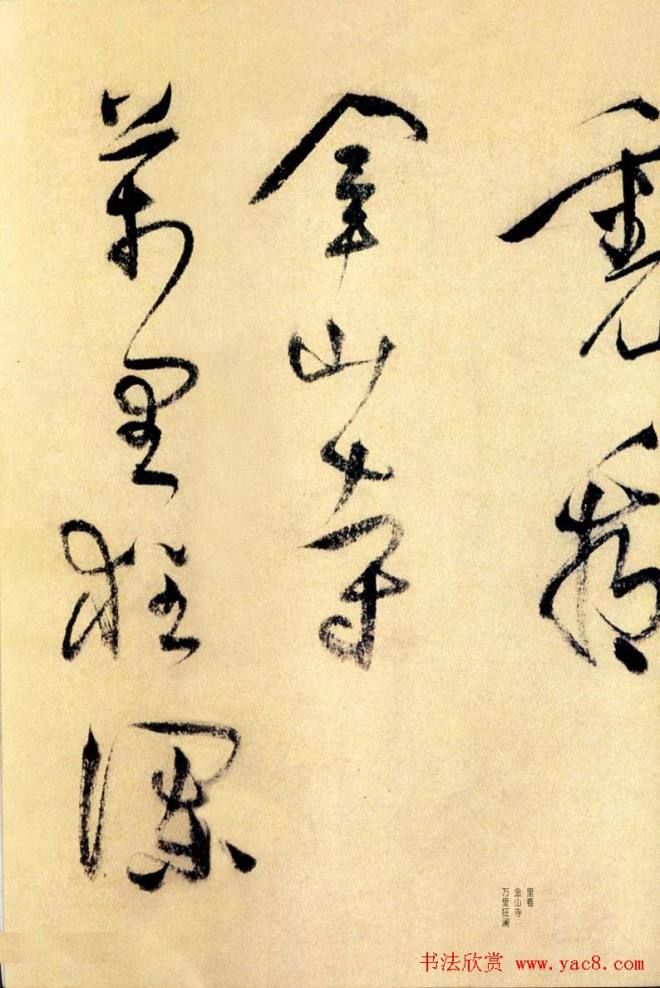 裏看
金山寺
萬里狂瀾
里看
金山寺
万里狂澜
书法欣赏 www.yac8.com